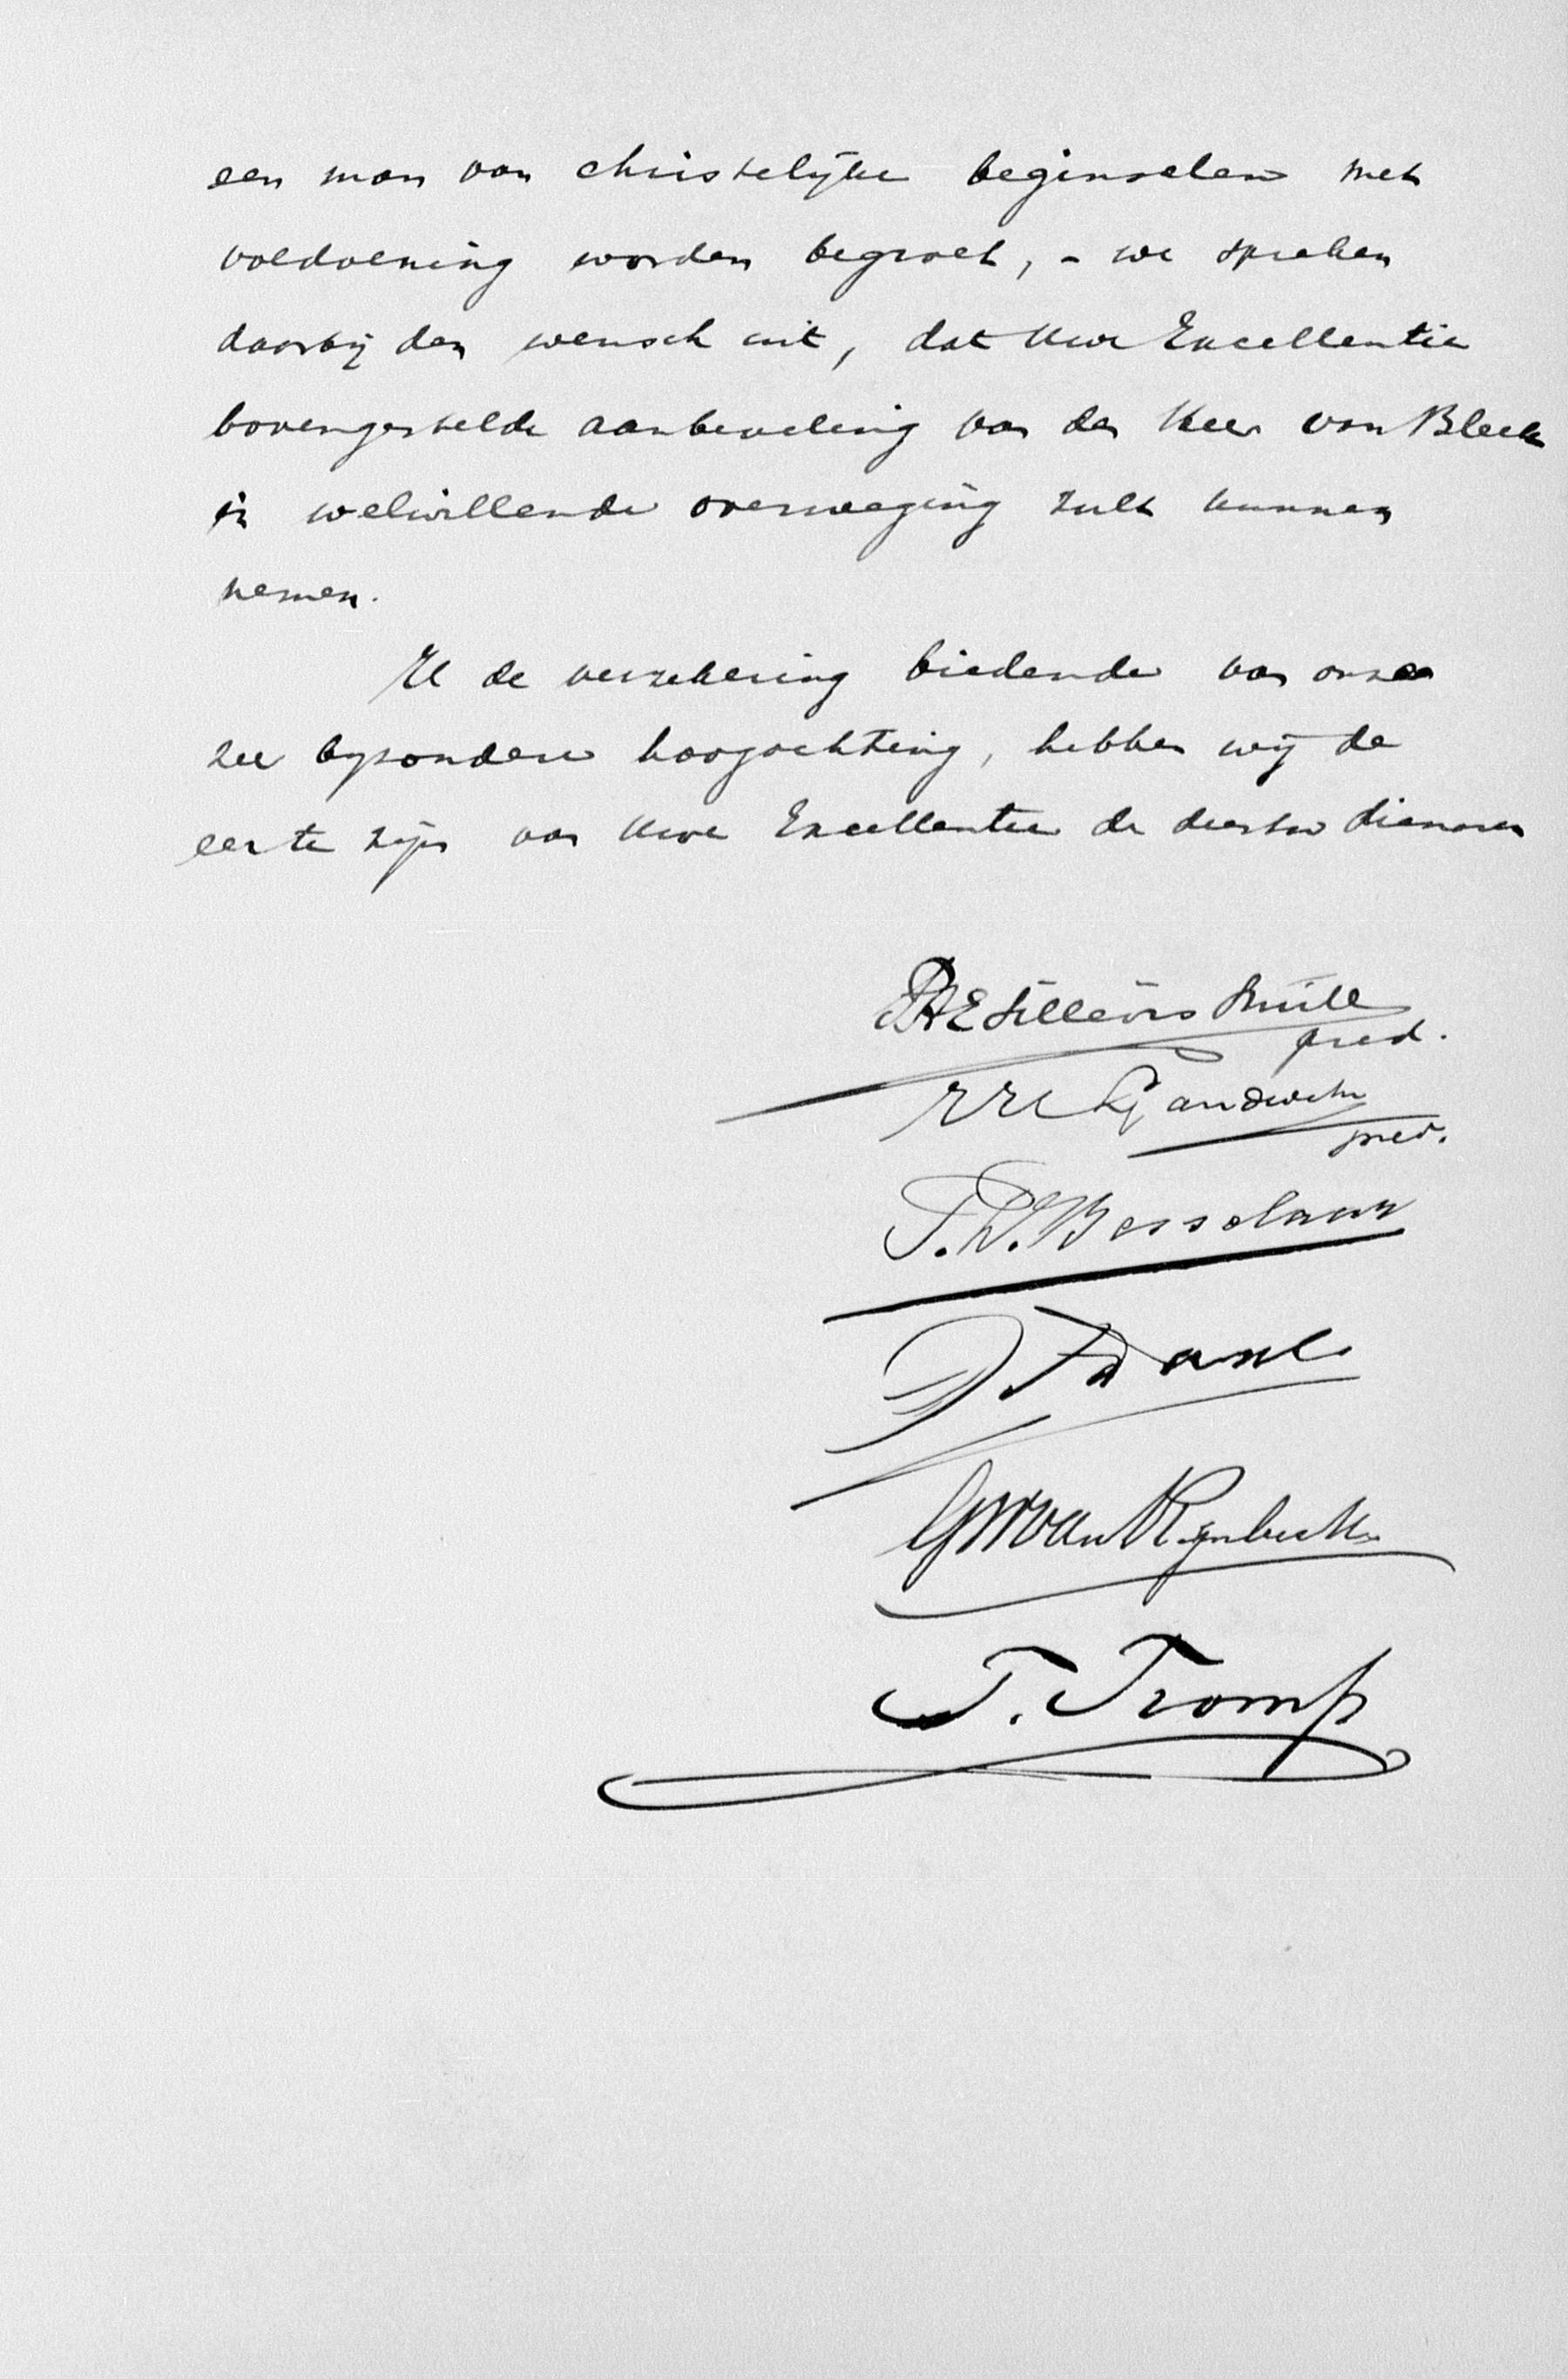 een man van christelijke beginselen met
voldoening worden begroet, - we spreken
daarbij den wensch uit, dat Uwe Excellentie
bovengestelde aanbeveling van den Heer van Bleek
in welwillende overweging zult kunnen
nemen.
U de verzekering biedende van onze
zeer byzondere hoogachting, hebben wij de
eer te zijn van Uwe Excellentie de dienaren
pred.
Landwehr
pred.
Besselaar
G W van Rynbeek
T. Tromp